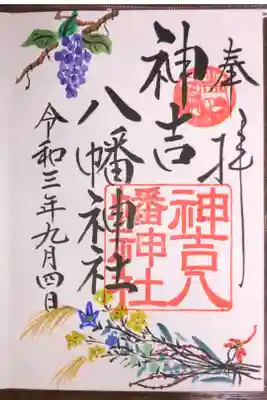 奉拝
神吉
八幡神社
令和三年九月四日
神吉八
幡神社